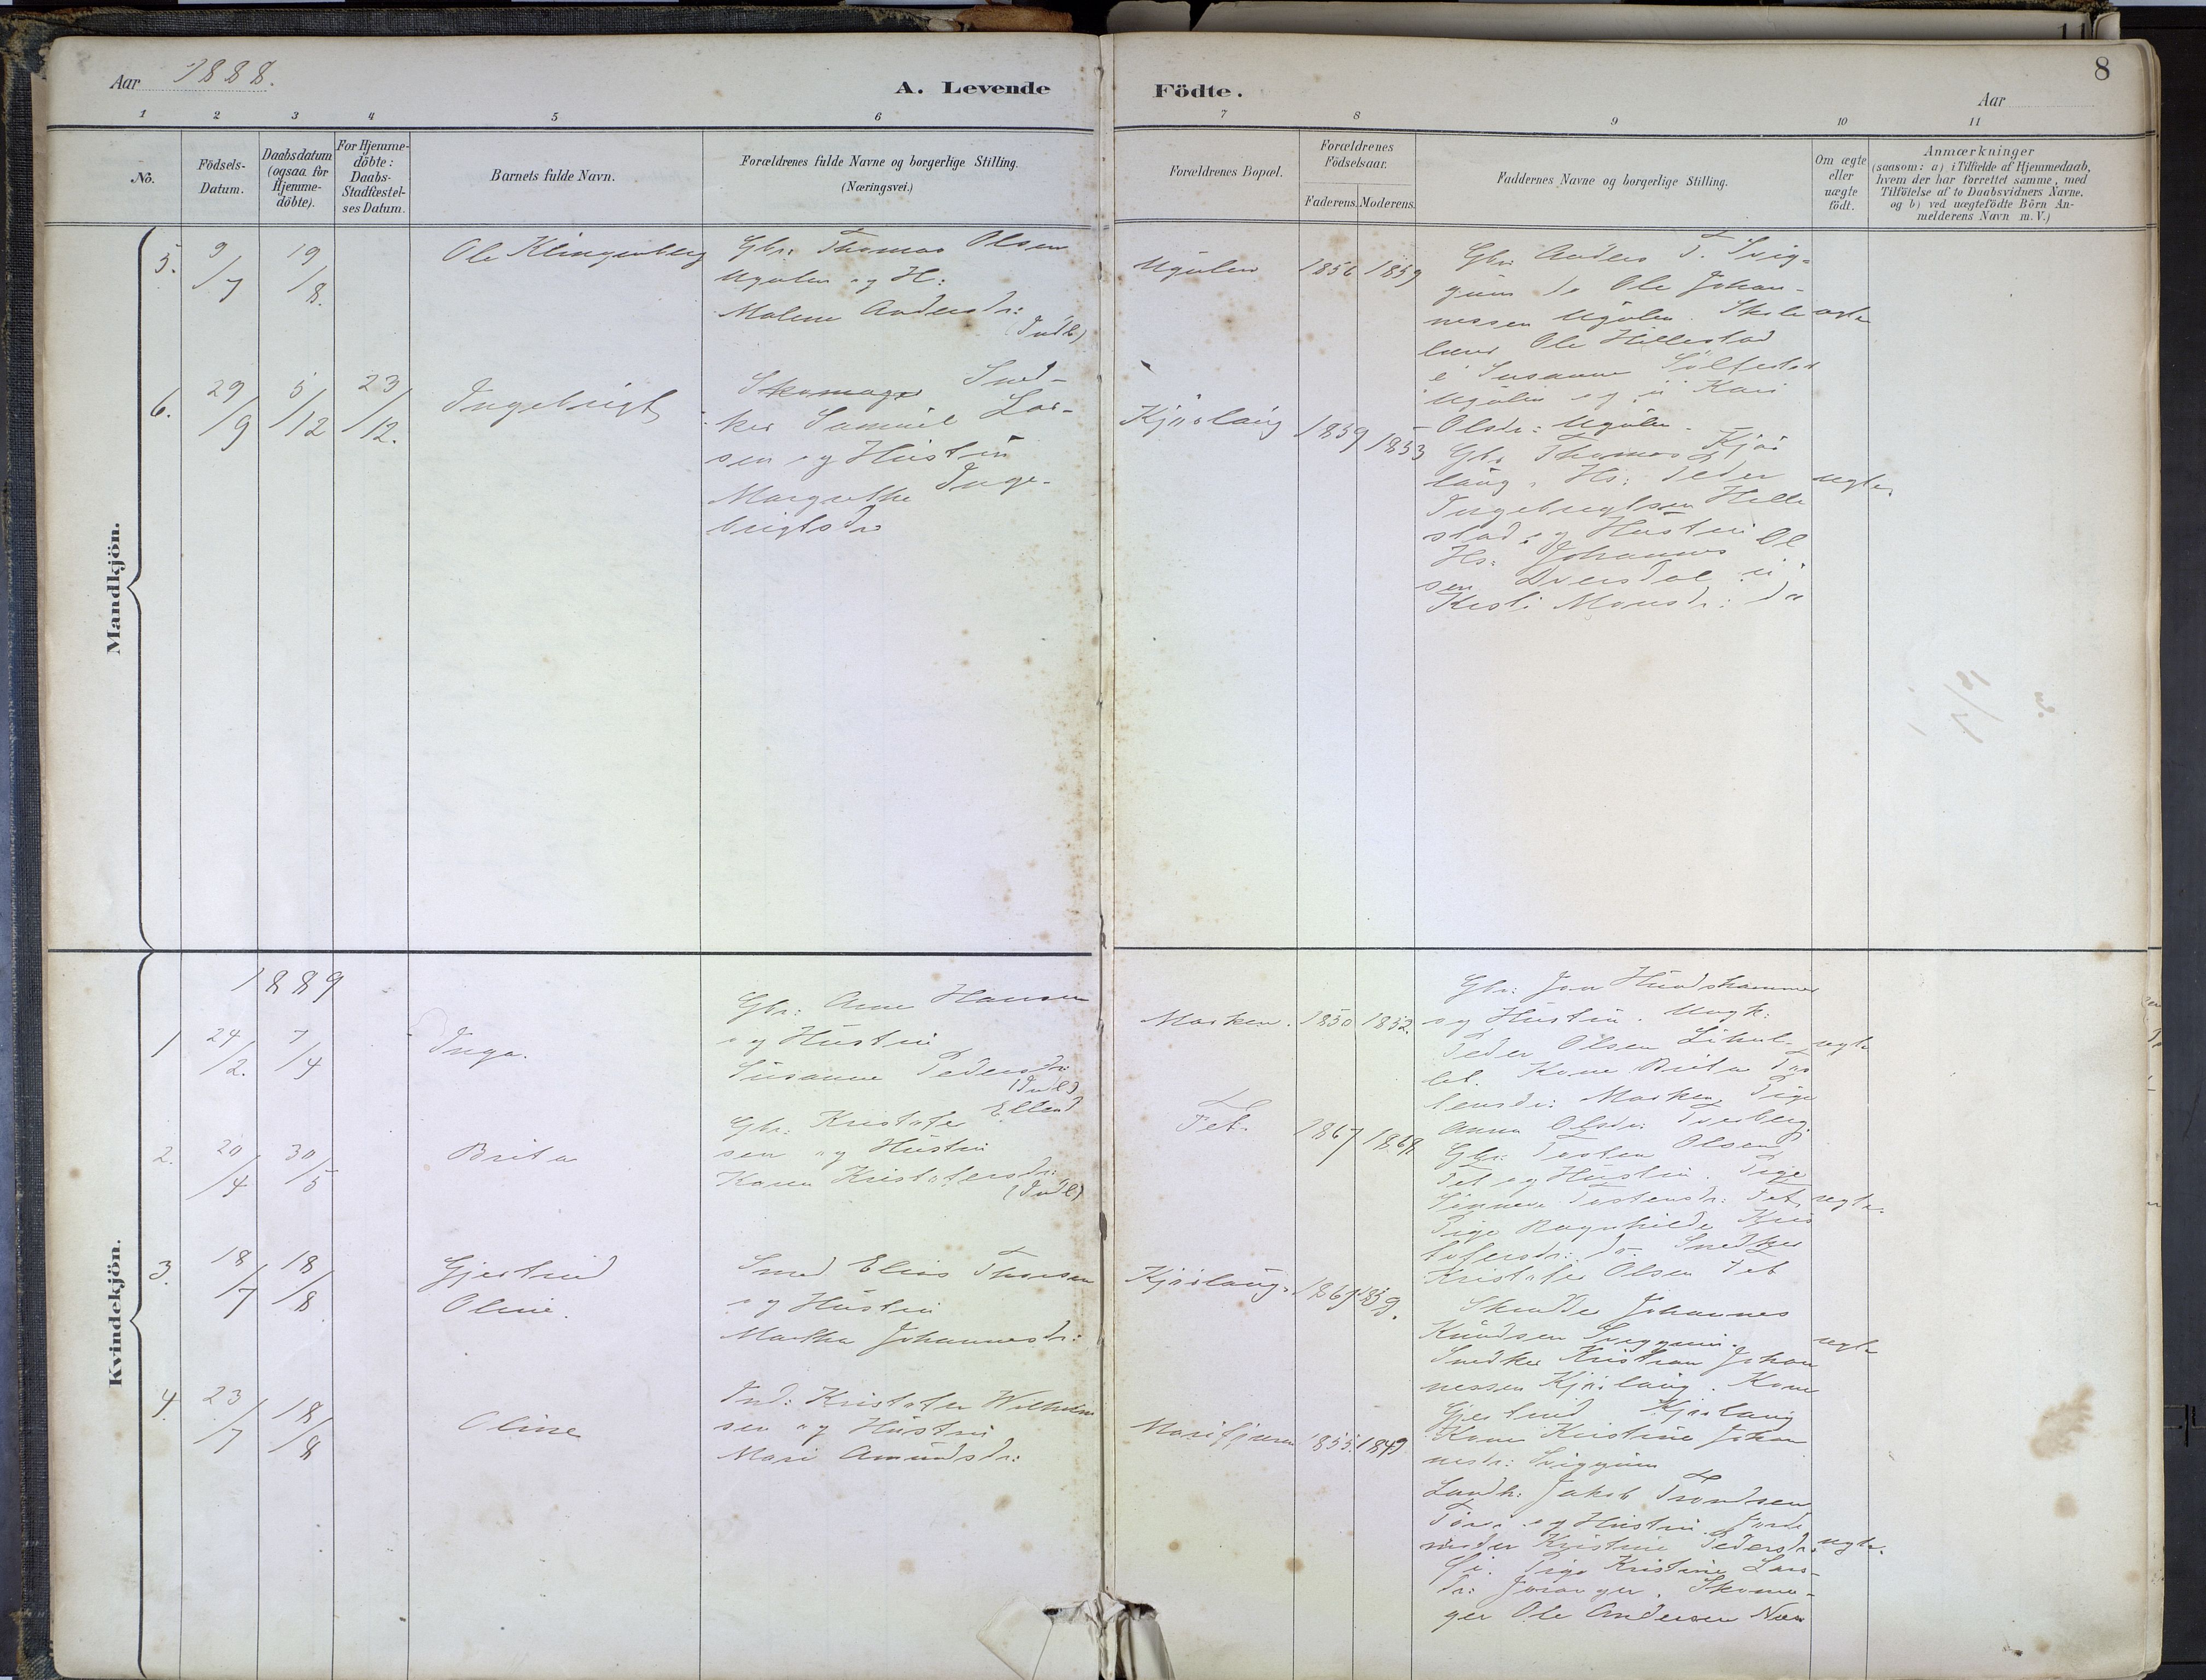 Aar 1888.
A. Levende
Födte.
Aar
8
11
1 2 3 4 5 6 7 8 9 10 11
No.
Födsels-
Datum.
Daabsdatum
(ogsaa for
Hjemme-
döbte).
For Hjemme-
döbte:
Daabs-
Stadfæstel-
ses Datum.
Barnets fulde Navn.
Forældrenes fulde Navne og borgerlige Stilling.
(Næringsvei.)
Forældrenes Bopæl.
Forældrenes
Födselsaar.
Faderens. Moderens.
Faddernes Navne og borgerlige Stilling.
Om ægte
eller
uægte
födt.
Anmærkninger
(saasom: a) i Tilfælde af Hjemmedaab,
hvem der har forrettet samme, med
Tilföielse af to Daabsvidners Navne,
og b) ved uægtefödte Börn An-
melderens Navn m. V.)
Mandkjön.
5. 9/7 19/8. Ole Klingenberg
Gbr: Thomas Olsen
Ugulen og H:
Malene Andersdr:
(Indb)
Ugulen 1856 1859
Gbr: Anders T. Svig-
gum do Ole Johan-
nessen Ugulen. Skole
lærer Ole Hillestad
Susanne
Ugulen og Kari
Olsdr: Ugulen.
ægte
6. 29/9 5/12 23/12. Ingebrigt
Skomager Sned-
ker Samuel Lar-
sen og Hustru
Margrethe Inge-
brigtsdr
Kjörlaug 1859 1853
Gbr Thomas Kjör
laug. Hs: Peder
Ingebrigtsen Hille
stad og Hustru
Hs: Johannes Ol
sen Dversdal
Kristi Monsdr: do
ægte
Kvindekjön.
1889
1 24/2. 7/4 Inga.
Gbr: Arne Hansen
og Hustru
Susanne Pedersdr:
(Indb)
Morken. 1850 1852.
Gbr: Jon Hundshammer
og Hustru. Ungk:
Peder Olsen
Kone Brita Tor
lensdr: Morken, Pige
Anna Olsdr: Tveberg.
ægte
2. 20/4 30/5 Brita
Gbr: Kristofer Ellend
sen og Hustru
Karen Kristofersdr:
(Indb)
Fet. 1867 1868
Gbr: Tosten Olsen
Fet og Hustru. Pige
Sinneve Tostensdr: Fet.
Pige Ragnhilde Kris
tofersdr: do. Snedker
Kristofer Olsen Fet
ægte.
3. 18/7 18/8 Gjertrud
Oline.
Smed Elias Thorsen
og Hustru
Martha Johannesdr:
Kjörlaug. 1867 1859.
Skrædder Johannes
Knudsen Sviggum.
Snedker Kristian Johan
nessen Kjörlaug. Kone
Gjertrud Kjörlaug
Kone Kristine Johan
nesdr: Sviggum
ægte
4. 23/7 18/8 Oline
Ind: Kristofer Wilhelm
sen og Hustru
Mari Amundsdr:
Marifjæren 1855. 1849
Landh: Jakob Trondsen
og Hustru. Jorde
moder Kristine Pedersdr.
Pige Kristine Lars-
dr: Joranger. Skoma-
ger Ole Andersen Næs
ægte.